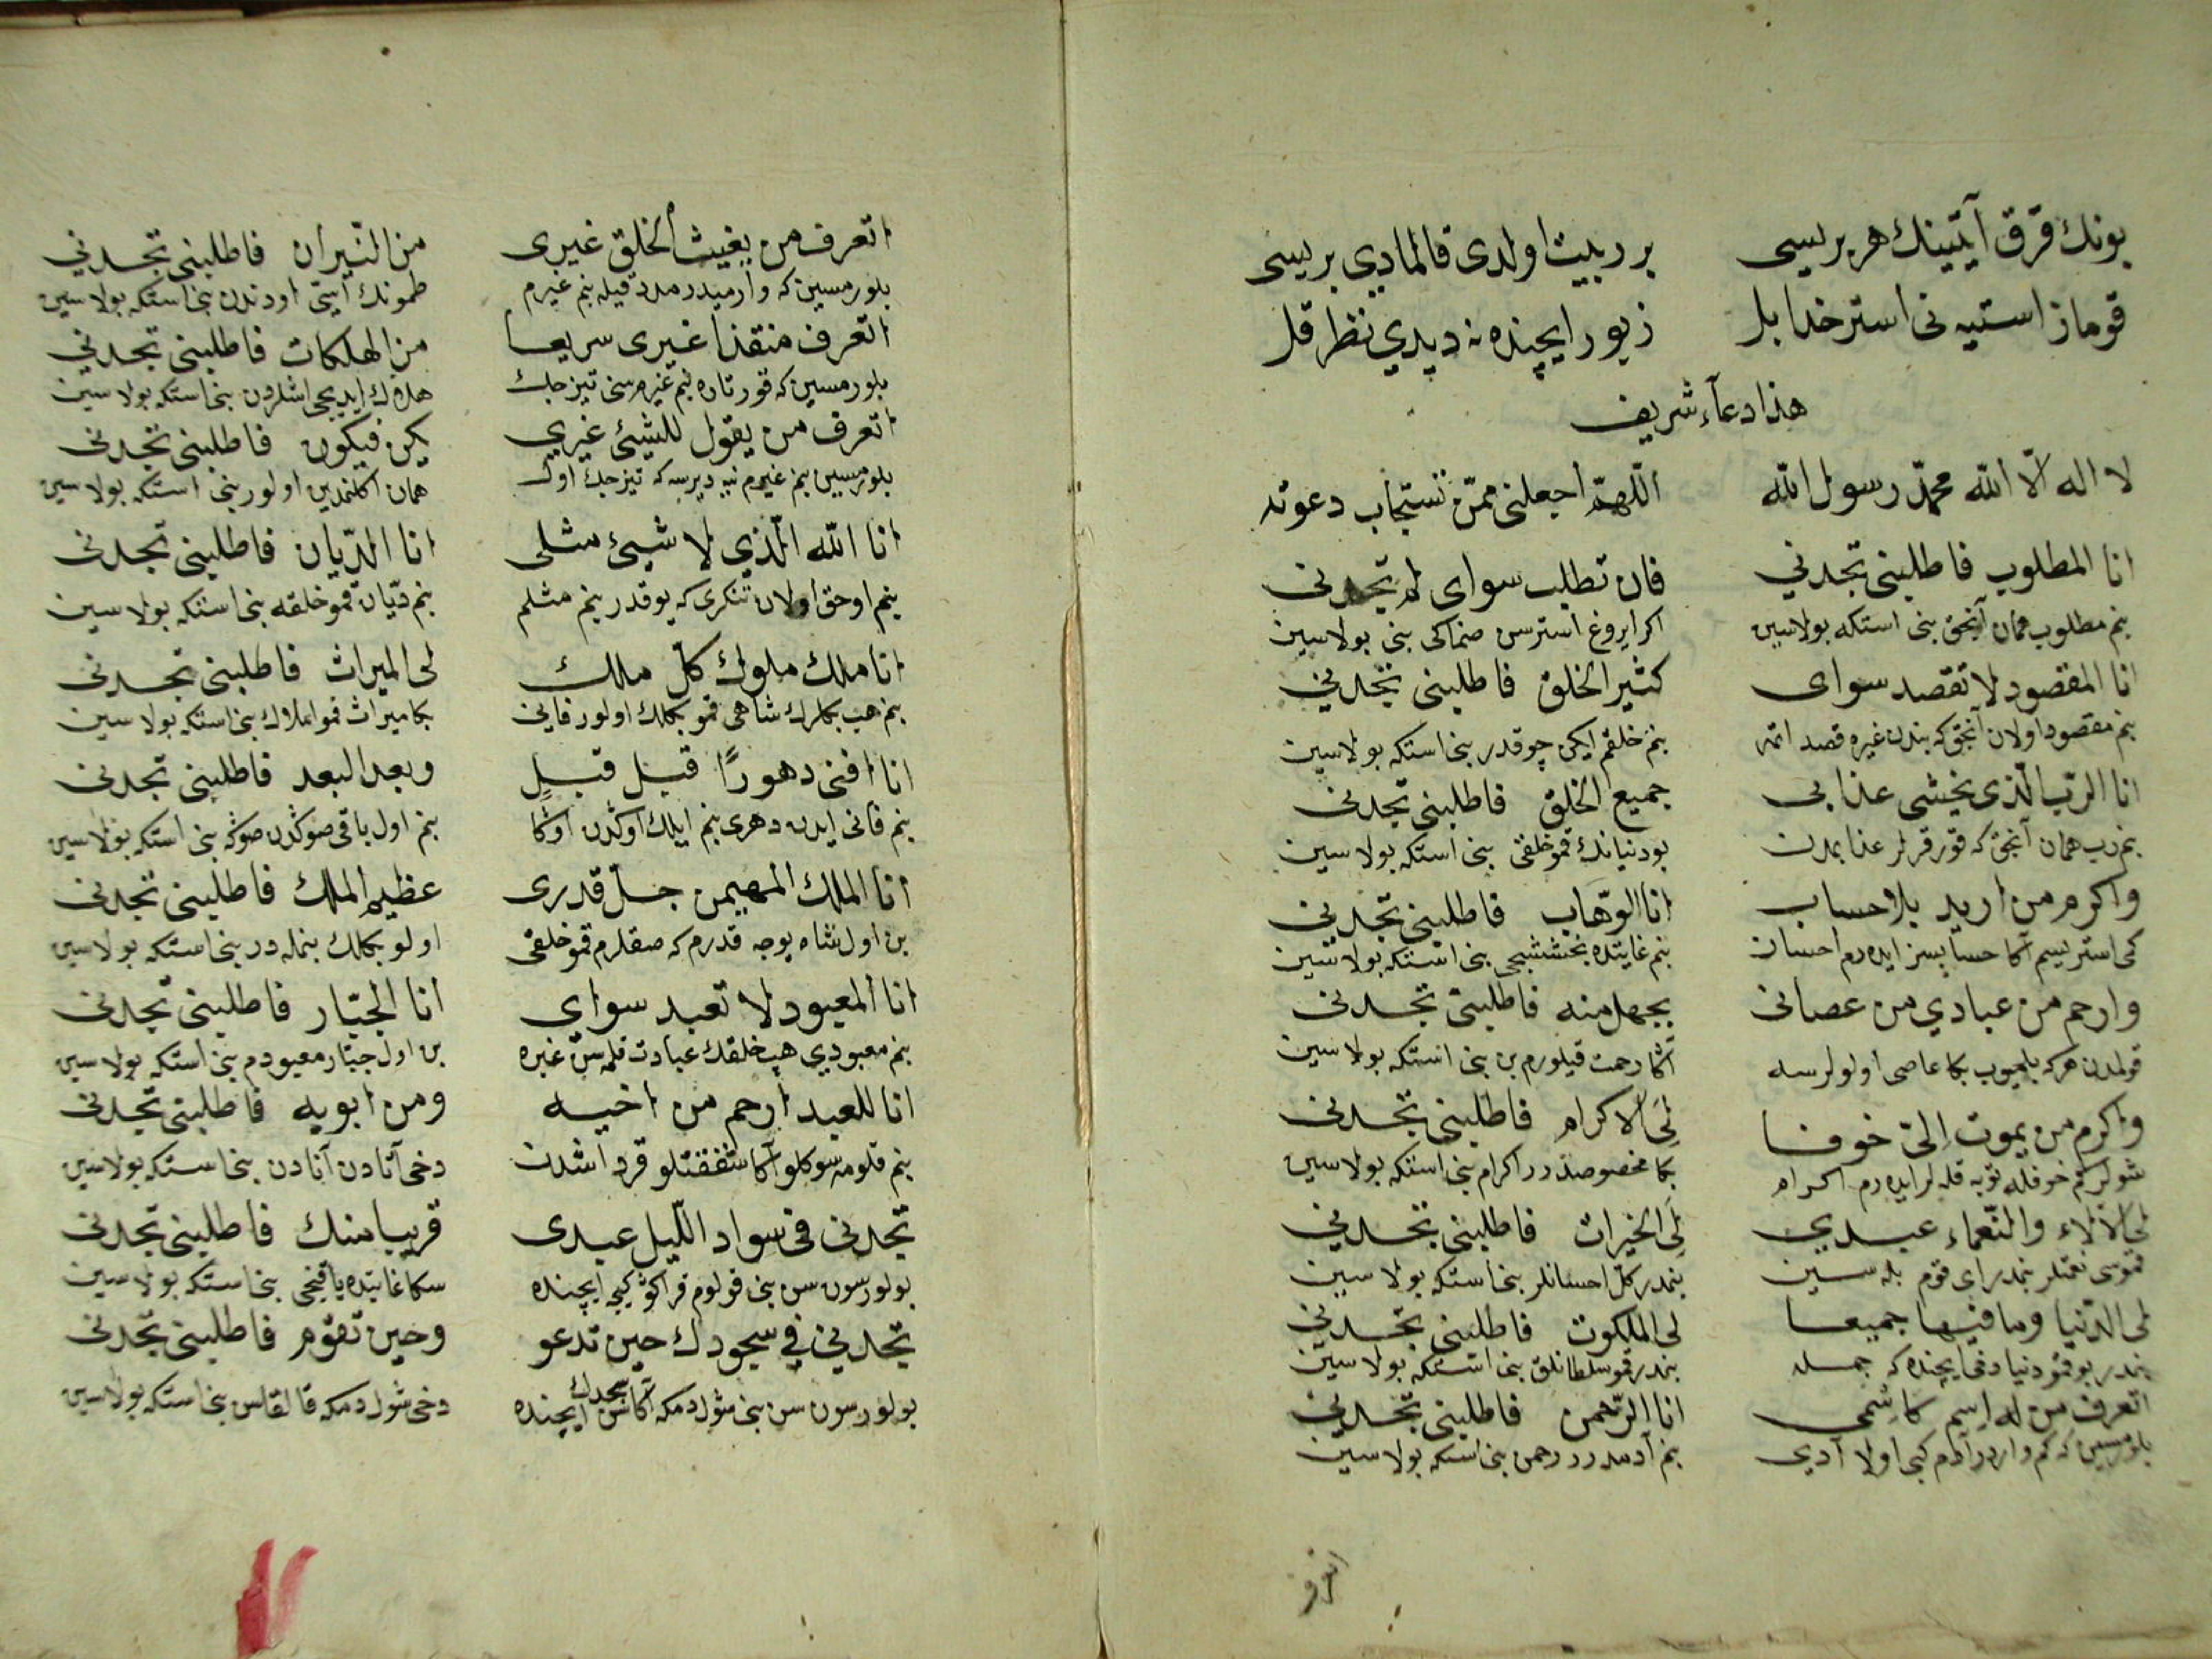 بونك قرق آيتينك هر بريسى بر دبيت اولدى قالمادي بريسى
قوماز استيه نى استر خدا بل زبور ايچنده نه ديدي نظر قل
هذا دعاء شريف
لا اله الّا الله محمّد رسول الله اللّهمّ اجعلنى ممّن تستجاب دعوته
انا المطلوب فاطلبنى تجدني فان تطلب سواى لم تجدنى
بنم مطلوب همان آنجق بنى استكه بولاسين اكر ايروغ استرسن صنماكى بنى بولاسين
انا المقصود لا تقصد سواى كثير الخلق فاطلبنى تجدني
بنم مقصود اولان آنجق كه بندن غيره قصد اتمه بنم خلقم ايكن چوقدر بنى استكه بولاسين
انا الرّب الّذى يخشى عذابى جميع الخلق فاطلبنى تجدنى
بنم رب همان آنجق كه قورقرلر عذابمدن بو دنيانك قمو خلقى بنى استكه بولاسين
واكرم من اريد بلا حساب انا الوهّاب فاطلبنى تجدنى
كمى استر يسم آكا حسابسز ايده رم احسان بنم غايتده بخششجى بنى استكه بولاسين
وارحم من عبادي من عصانى بجهل منه فاطلبنى تجدنى
قولمدن هر كه بلميوب بكا عاصى اولورسه آكا رحمت قيلورم بن بنى استكه بولاسين
واكرم من يموت الىّ خوفا لى الاكرام فاطلبنى تجدنى
شولركم خوفله توبه قله لر ايده رم اكرام بكا مخصوصدر اكرام بنى استكه بولاسين
لى الآلاء والنّعماء عبدي لى الخيرات فاطلبنى تجدني
قموسى نعمتلر بنمدر اى قوم بله سين بنمدر كلّ احسانلر بنى استكه بولاسين
لى الدّنيا وما فيها جميعا لى الملكوت فاطلبنى تجدنى
بنمدر بو قمو دنيا دخى ايچنده كه جمله بنمدر قمو سلطانلق بنى استكه بولاسين
اتعرف من له اسم كاسمى انا الرّحمن فاطلبنى تجدنى
بلورمسين كه كم واردر آدم كبى اولا آدي بنم آدمدر رحمن بنى استكه بولاسين
اتعرف
اتعرف من يغيث الخلق غيرى من النّيران فاطلبنى تجدني
بلورمسين كه وارميدر مدد قيله بنم غيرم طمونك اسّى اودندن بنى استكه بولاسين
اتعرف منقذا غيرى سريعا من الهلكات فاطلبنى تجدني
بلورمسين كه قورتاره بنم غيرم سنى تيزجك هلاك ايديجى اشلردن بنى استكه بولاسين
اتعرف من يقول للشيئ غيري كن فيكون فاطلبنى تجدنى
بلورمسين بنم غيرم نيه ديرسه كه تيزجك اول همان اكلنمدين اولور بنى استكه بولاسين
انا الله الّذي لا شيئ مثلى انا الدّيان فاطلبنى تجدنى
بنم اوحق اولان تنكرى كه يوقدر بنم مثلم بنم ديّان قمو خلقه بنى استكه بولاسين
انا ملك ملوك كلّ ملك لى الميراث فاطلبنى تجدنى
بنم هب بكلرك شاهى قمو بكلك اولور فانى بكا ميراث قمو املاك بنى استكه بولاسين
انا افنى دهورًا قبل قبلٍ وبعد البعد فاطلبنى تجدنى
بنم فانى ايدن دهرى بنم ايلك اوكدن اوكا بنم اول باقى صوكدن صوكه بنى استكه بولاسين
انا الملك المهيمن جلّ قدرى عظيم الملك فاطلبنى تجدنى
بن اول شاه يوجه قدرم كه صقلرم قمو خلقى اولو بكلك بنمله در بنى استكه بولاسين
انا المعبود لا تعبد سواي انا الجبّار فاطلبنى تجدنى
بنم معبودي هب خلقك عبادت قلمه سن غيره بن اول جبّار معبودم بنى استكه بولاسين
انا للعبد ارحم من اخيه ومن ابويه فاطلبنى تجدنى
بنم قلومه سوكلو آكا شفقتلو قرداشدن دخى آتادن آنادن بنى استكه بولاسين
تجدنى فى سواد اللّيل عبدى قريبا منك فاطلبنى تجدنى
بولورسون سن بنى قولوم قراكو كيجه ايچنده سكا غايتده ياقينجى بنى استكه بولاسين
تجدني في سجودك حين تدعو وحين تقوم فاطلبنى تجدنى
بولورسون سن بنى شول دمكه آكاسن سجدك ايچنده دخى شول دمكه قالقاسن بنى استكه بولاسين